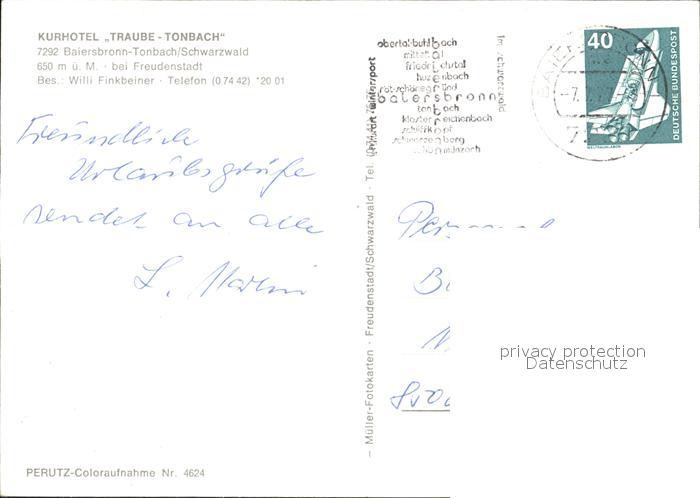 KURHOTEL „TRAUBE - TONBACH"
7292 Baiersbronn-Tonbach/Schwarzwald
650 m ü. M. · bei Freudenstadt
Bes.: Willi Finkbeiner · Telefon (0 74 42) *20 01
Freundliche
Urlaubsgrüße
sendet an alle
PERUTZ-Coloraufnahme Nr. 4624
— Müller-Fotokarten · Freudenstadt/Schwarzwald · Tel.
obertal-buhlbach
mitteltal
friedrichstal
huzenbach
röt-schönegründ
baiersbronn
tonbach
kloster reichenbach
schliffkopf
schwarzenberg
schönmünzach
im schwarzwald
BAIERSBRONN
40
DEUTSCHE BUNDESPOST
WELTRAUMLABOR
privacy protection
Datenschutz